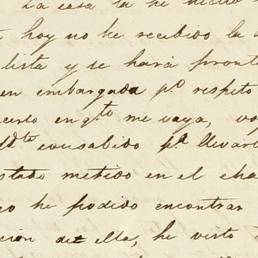 La casa la he
hoy no he recibido la
lista y se hará pront
en embargada pº respeto
en qᵗᵉ me vaya, vo
consabido pª llevarl
stado metido en el cha
o he podido encontrar
ción de ella, he visto